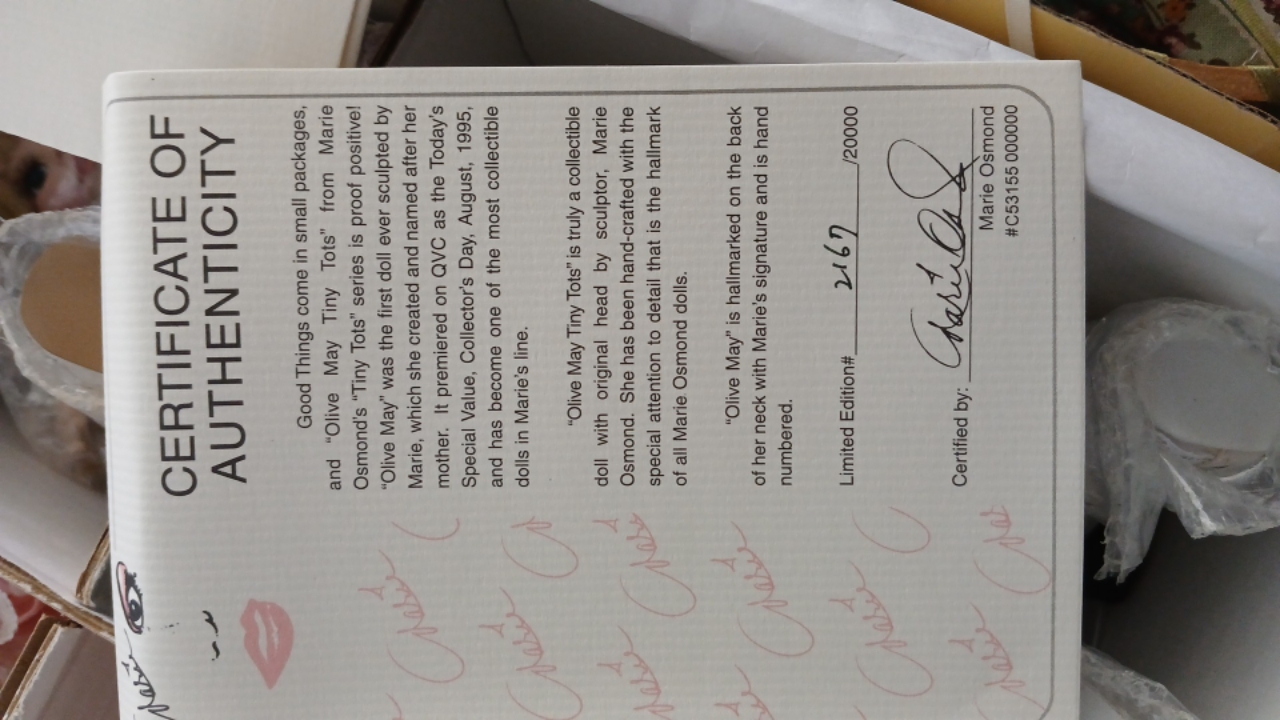 CERTIFICATE OF
AUTHENTICITY
Good Things come in small packages,
and “Olive May Tiny Tots” from Marie
Osmond's “Tiny Tots” series is proof positive!
“Olive May” was the first doll ever sculpted by
Marie, which she created and named after her
mother. It premiered on QVC as the Today's
Special Value, Collector's Day, August, 1995,
and has become one of the most collectible
dolls in Marie's line.
“Olive May Tiny Tots” is truly a collectible
doll with original head by sculptor, Marie
Osmond. She has been hand-crafted with the
special attention to detail that is the hallmark
of all Marie Osmond dolls.
“Olive May” is hallmarked on the back
of her neck with Marie's signature and is hand
numbered.
Limited Edition# 2167 /20000
Certified by: Marie Osmond
Marie Osmond
#C53155 000000
Marie
Marie
Marie
Marie
Marie
Marie
Marie
Marie